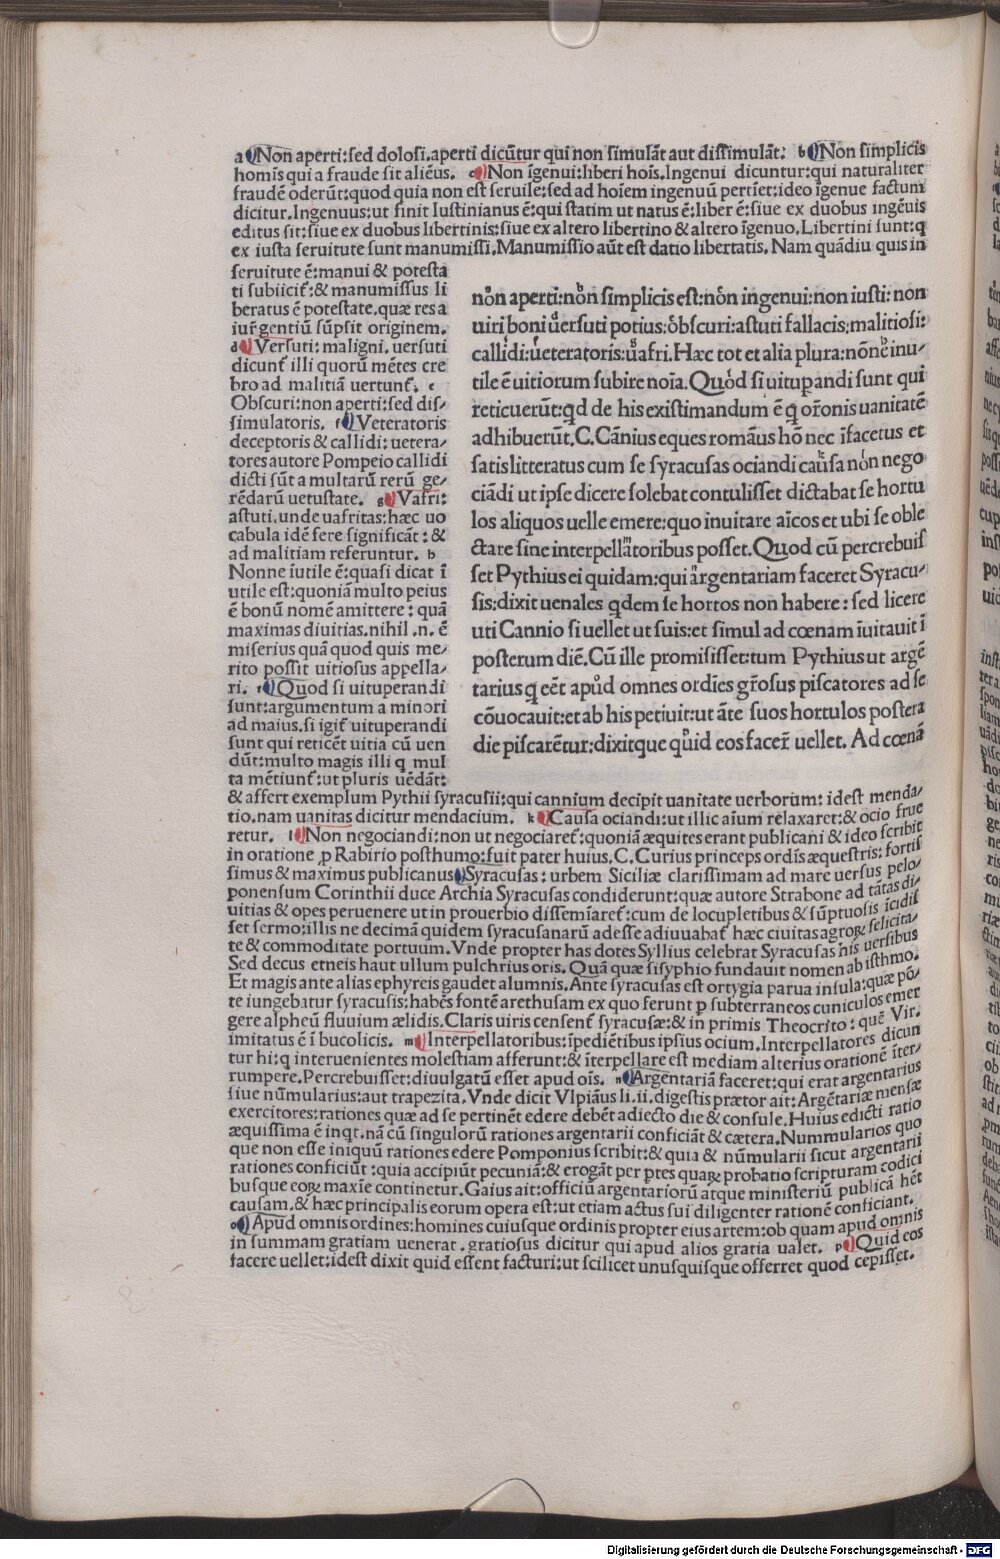 a Non aperti:sed dolosi.aperti dicūtur qui non simulāt aut dissimulāt. b Non simplicis
homīs qui a fraude sit aliēus. c Non īgenui:liberi hoīs.Ingenui dicuntur:qui naturaliter
fraudē oderūt:quod quia non est seruile:sed ad hoīem ingenuū pertiet:ideo īgenue factum
dicitur.Ingenuus:ut finit Iustinianus ē:qui statim ut natus ē:liber ē:siue ex duobus ingēuis
editus sit:siue ex duobus libertinis:siue ex altero libertino & altero īgenuo.Libertini sunt:q
ex iusta seruitute sunt manumissi.Manumissio aūt est datio libertatis. Nam quādiu quis in
seruitute ē:manui & potesta
ti subiicit᷑:& manumissus li
beratus ē potestate.quæ res a
iur̄ gentiū sūpsit originem.
d Versuti: maligni. uersuti
dicunt᷑ illi quorū mētes cre
bro ad malitiā uertunt᷑. e
Obscuri:non aperti:sed dis⸗
simulatoris. f Veteratoris
deceptoris & callidi: uetera⸗
tores autore Pompeio callidi
dicti sūt a multarū rerū ge⸗
rēdarū uetustate. g Vafri:
astuti.unde uafritas:hæc uo
cabula idē fere significāt: &
ad malitiam referuntur. h
Nonne īutile ē:quasi dicat ī
utile est:quoniā multo peius
ē bonū nomē amittere: quā
maximas diuitias.nihil .n. ē
miserius quā quod quis me⸗
rito possit uitiosus appella⸗
ri. i Quod si uituperandi
sunt:argumentum a minori
ad maius.si igit᷑ uituperandi
sunt qui reticēt uitia cū uen
dūt:multo magis illi q mul
ta mētiunt᷑:ut pluris uēdāt:
non aperti:non simplicis est:non ingenui:non iusti: non
uiri boni uersuti potius:obscuri:astuti fallacis:malitiosi:
callidi:ueteratoris:uafri.Hæc tot et alia plura:nōne inu⸗
tile ē uitiorum subire noīa.Quod si uitupandi sunt qui
reticuerūt:qd de his existimandum ē q or̄onis uanitatē
adhibuerūt.C.Cānius eques romāus hō nec īfacetus et
satis litteratus cum se syracusas ociandi causa non nego
ciādi ut ipse dicere solebat contulisset dictabat se hortu
los aliquos uelle emere:quo inuitare aīcos et ubi se oble
ctare sine interpellatoribus posset.Quod cū percrebuis
set Pythius ei quidam:qui argentariam faceret Syracu⸗
sis:dixit uenales qdem se hortos non habere: sed licere
uti Cannio si uellet ut suis:et simul ad cœnam īuitauit ī
posterum diē.Cū ille promisisset:tum Pythius ut argē
tarius q eēt apud omnes ordīes gr̄osus piscatores ad se
cōuocauit:et ab his petiuit:ut āte suos hortulos postera
die piscarētur:dixitque quid eos facer̄ uellet. Ad cœnā
& affert exemplum Pythii syracusii:qui cannium decipit uanitate uerborum: idest menda⸗
tio.nam uanitas dicitur mendacium. k Causa ociandi:ut illic aīum relaxaret:& ocio frue
retur. l Non negociandi:non ut negociaret᷑:quoniā æquites erant publicani & ideo scribit
in oratione p Rabirio posthumo:fuit pater huius.C.Curius princeps ordīs æquestris: fortis
simus & maximus publicanus Syracusas: urbem Siciliæ clarissimam ad mare uersus pelo⸗
ponensum Corinthii duce Archia Syracusas condiderunt:quæ autore Strabone ad tātas di⸗
uitias & opes peruenere ut in prouerbio dissemīaret᷑:cum de locupletibus & sūptuosis īcidis
set sermo:illis ne decimā quidem syracusanarū adesse adiuuabat᷑ hæc ciuitas agroꝝ felicita⸗
te & commoditate portuum.Vnde propter has dotes Syllius celebrat Syracusas his uersibus
Sed decus etneis haut ullum pulchrius oris. Quā quæ sisyphio fundauit nomen ab isthmo.
Et magis ante alias ephyreis gaudet alumnis. Ante syracusas est ortygia parua insula:quæ pō⸗
te iungebatur syracusis:habēs fontē arethusam ex quo ferunt p subterraneos cuniculos emer
gere alpheū fluuium ælidis.Claris uiris censent᷑ syracusæ:& in primis Theocrito: quē Vir.
imitatus ē ī bucolicis. m Interpellatoribus:īpediētibus ipsius ocium.Interpellatores dicun
tur hi:q interuenientes molestiam afferunt:& īterpellare est mediam alterius orationē īter⸗
rumpere.Percrebuisset:diuulgatū esset apud oīs. n Argentariā faceret:qui erat argentarius
siue nūmularius:aut trapezita.Vnde dicit Vlpiāus li.ii.digestis prætor ait:Argētariæ mensæ
exercitores:rationes quæ ad se pertinēt edere debēt adiecto die & consule.Huius edicti ratio
æquissima ē inqt.nā cū singulorū rationes argentarii conficiāt & cætera.Nummularios quo
que non esse iniquū rationes edere Pomponius scribit:& quia & nūmularii sicut argentarii
rationes conficiūt :quia accipiūt pecuniā:& erogāt per ptes quaꝝ probatio scripturam codici
busque eoꝝ maxīe continetur.Gaius ait:officiū argentariorū atque ministeriū publicā hēt
causam.& hæc principalis eorum opera est:ut etiam actus sui diligenter rationē conficiant.
o Apud omnis ordines:homines cuiusque ordinis propter eius artem:ob quam apud omnis
in summam gratiam uenerat .gratiosus dicitur qui apud alios gratia ualet. p Quid eos
facere uellet:idest dixit quid essent facturi:ut scilicet unusquisque offerret quod cepisset.
Digitalisierung gefördert durch die Deutsche Forschungsgemeinschaft - DFG